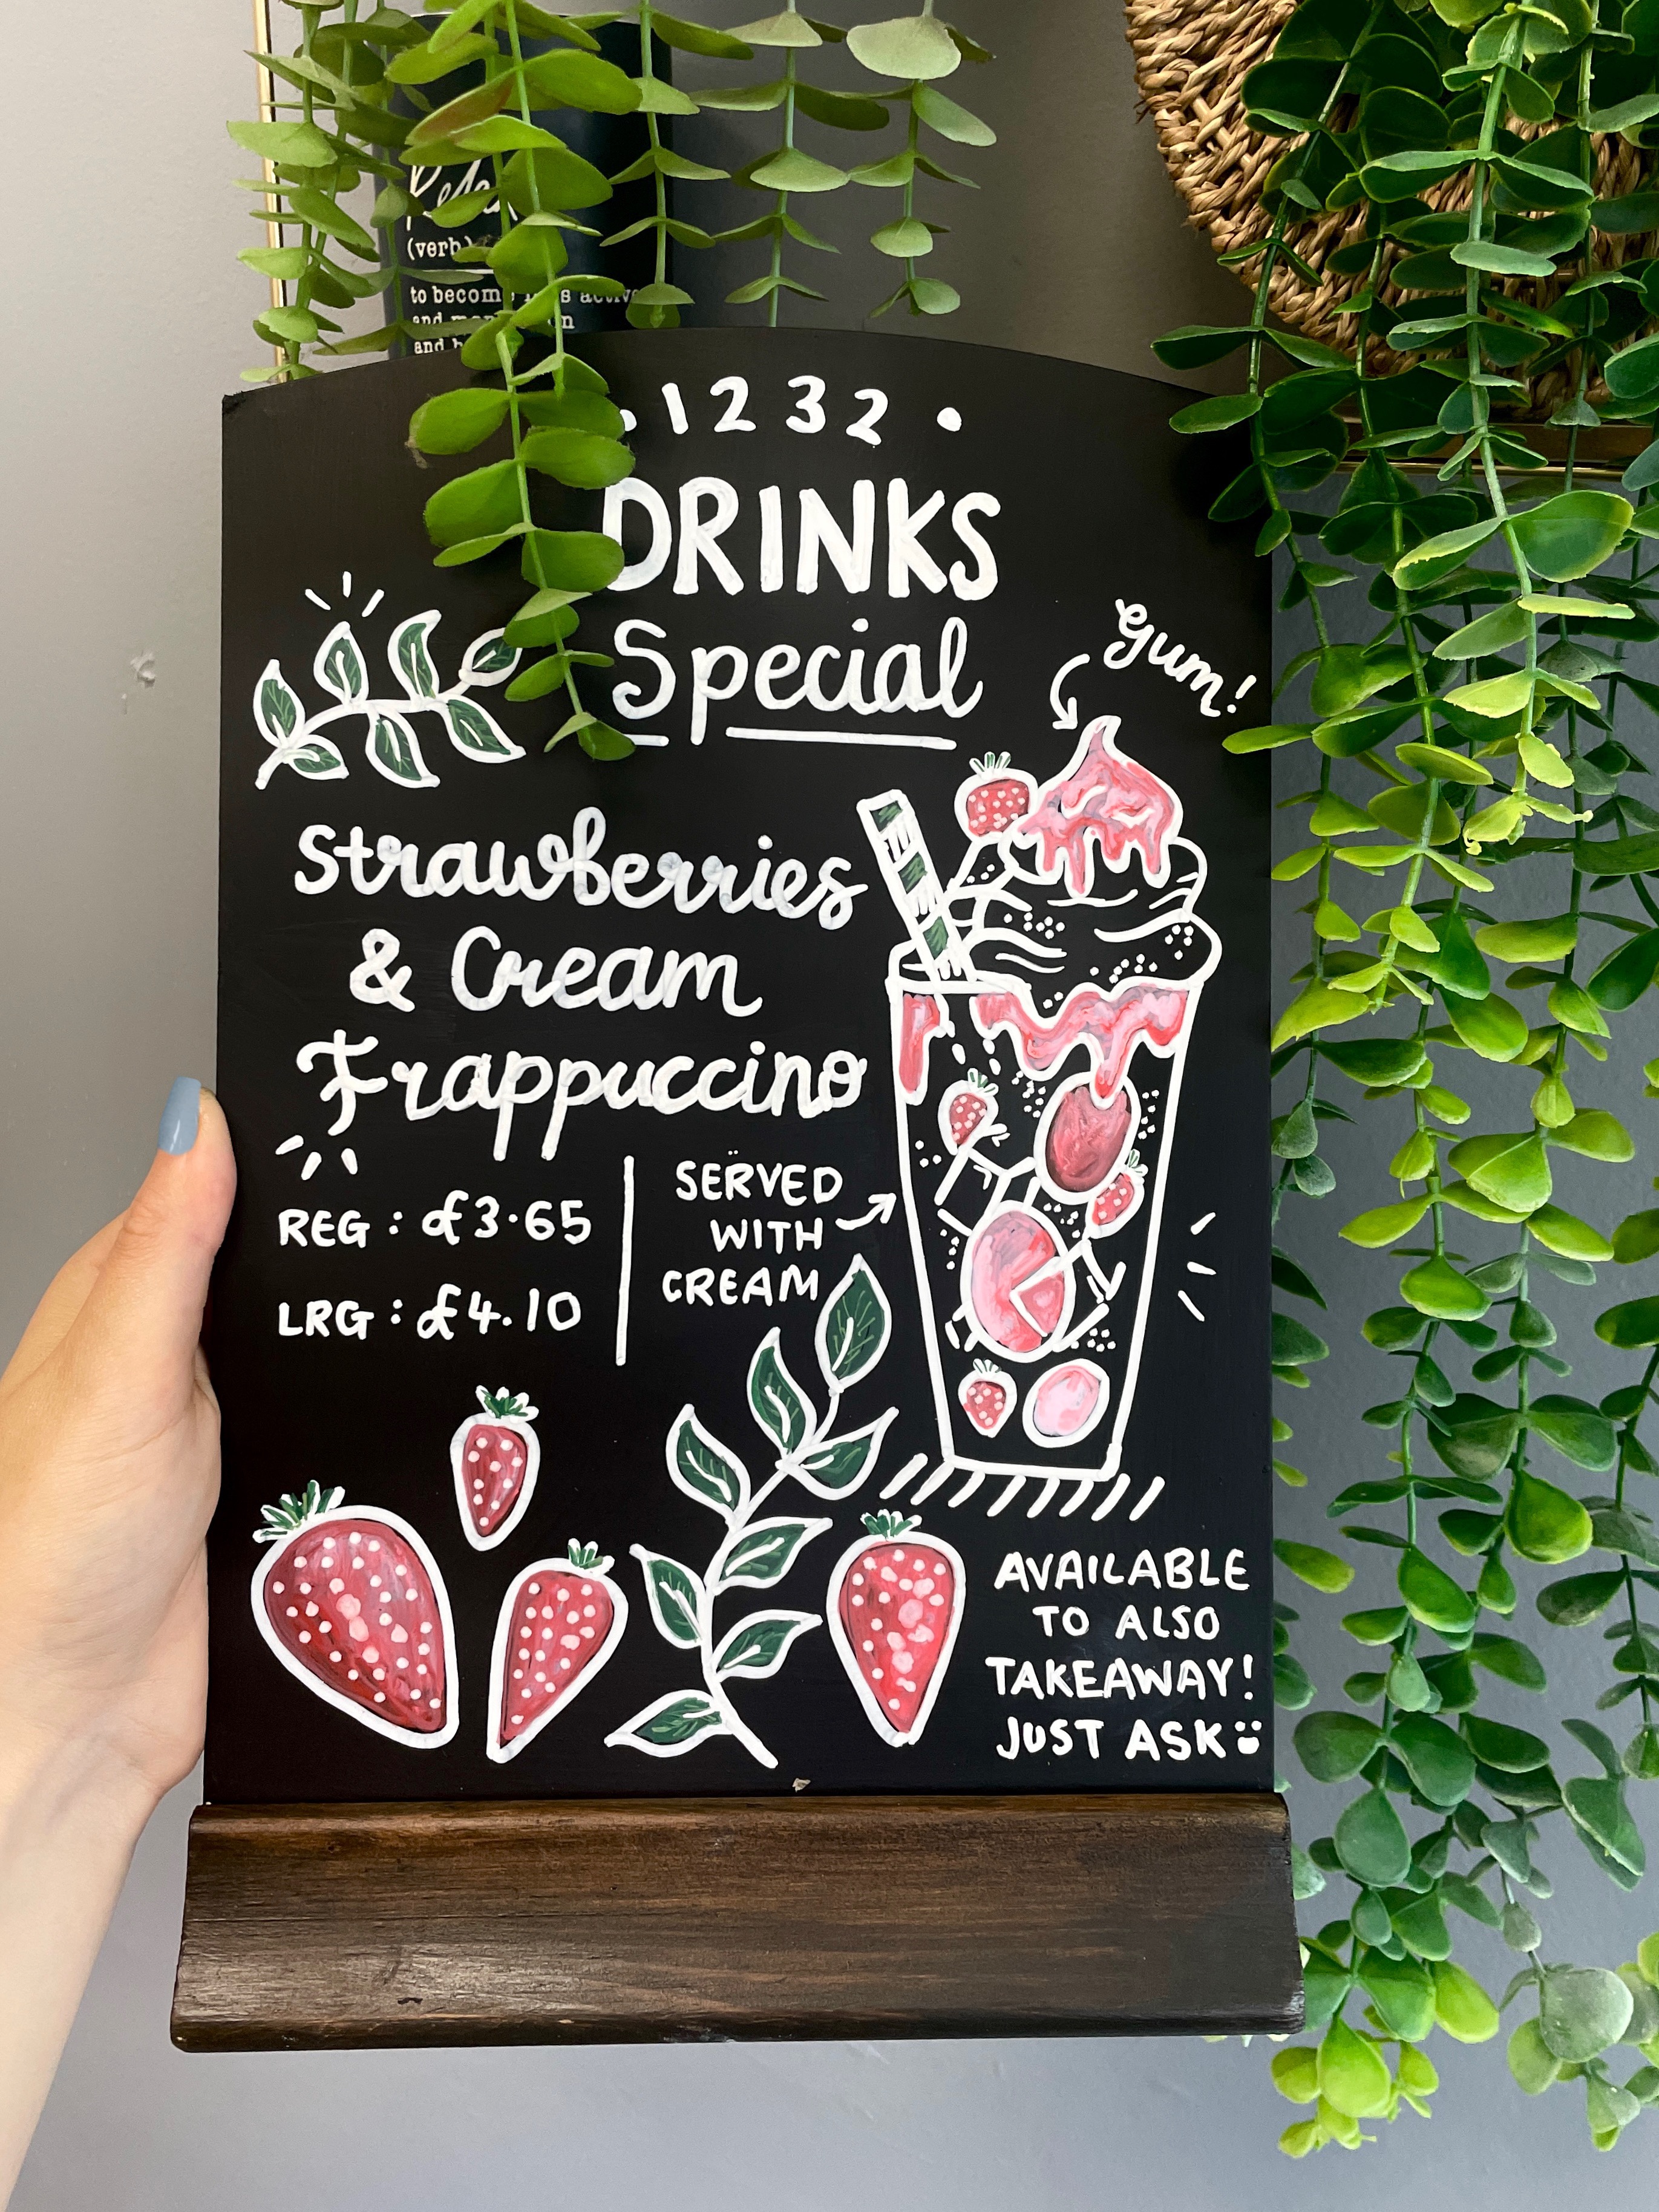 (verb)
to become less active
and
and
• 1232 •
DRINKS
Special
Gum!
Strawberries
& Cream
Frappuccino
REG : £3.65
LRG : £4.10
SERVED
WITH
CREAM
AVAILABLE
TO ALSO
TAKEAWAY!
JUST ASK